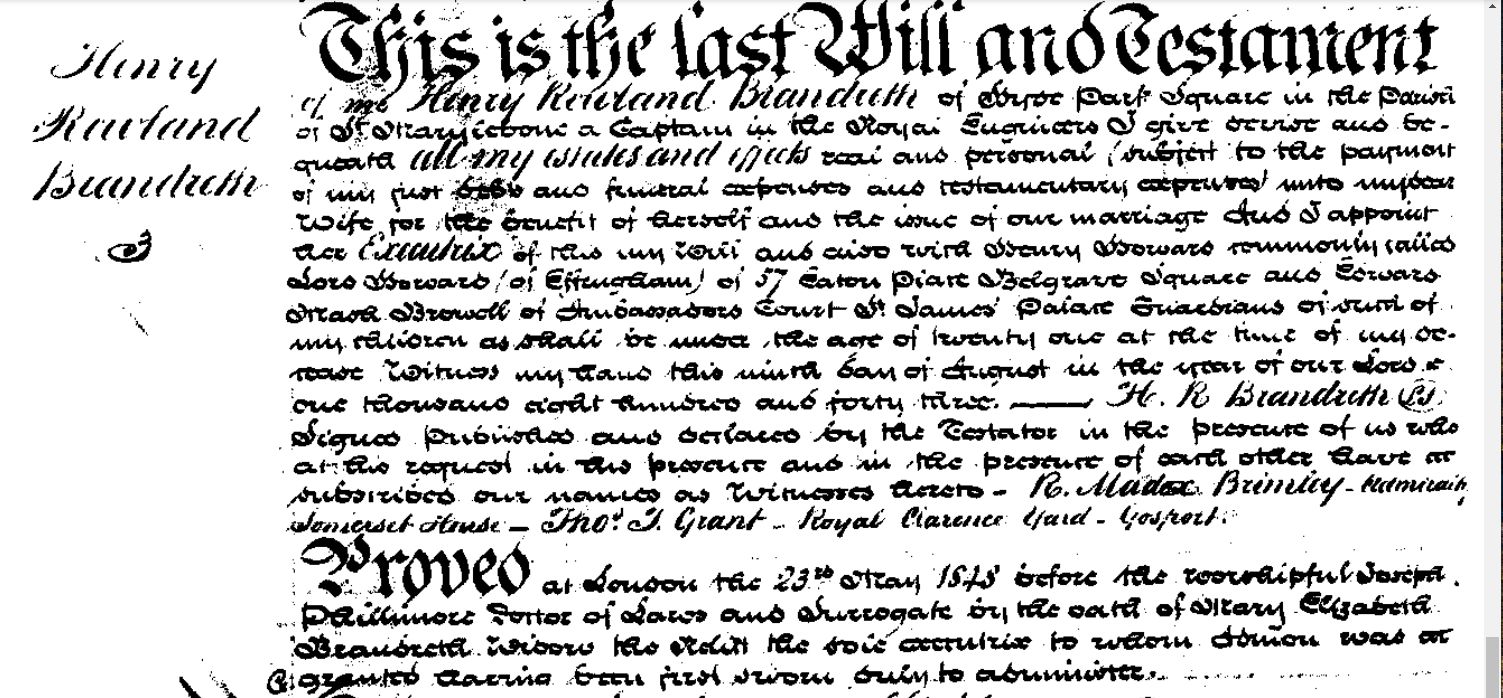 Henry
Rowland
Brandreth
This is the last Will and Testament
of me Henry Rowland Brandreth of Hyde Park Square in the Parish
of St. Marylebone a Captain in the Royal Engineers I give devise and be-
queath all my estates and effects real and personal (subject to the payment
of my just debts and funeral expenses and testamentary expenses) unto my dear
Wife for the benefit of herself and the issue of our marriage And I appoint
her Executrix of this my Will and also with Henry Howard commonly called
Lord Howard (of Effingham) of 57 Eaton Place Belgrave Square and Edward
Marsh Browell of Ambassadors Court St. James' Palace Guardians of such of
my children as shall be under the age of twenty one at the time of my de-
cease Witness my hand this ninth day of August in the year of our Lord
one thousand eight hundred and forty three. — H. R Brandreth (LS)
Signed published and declared by the Testator in the presence of us who
at his request in his presence and in the presence of each other have
subscribed our names as Witnesses hereto - R. Madox Bromley - Admiralty
Somerset House - Thos. T. Grant - Royal Clarence Yard - Gosport.
Proved at London the 23rd May 1848 before the worshipful Joseph
Phillimore Doctor of Laws and Surrogate by the oath of Mary Elizabeth
Brandreth Widow the Relict the sole executrix to whom Admon was
granted having been first sworn duly to administer.